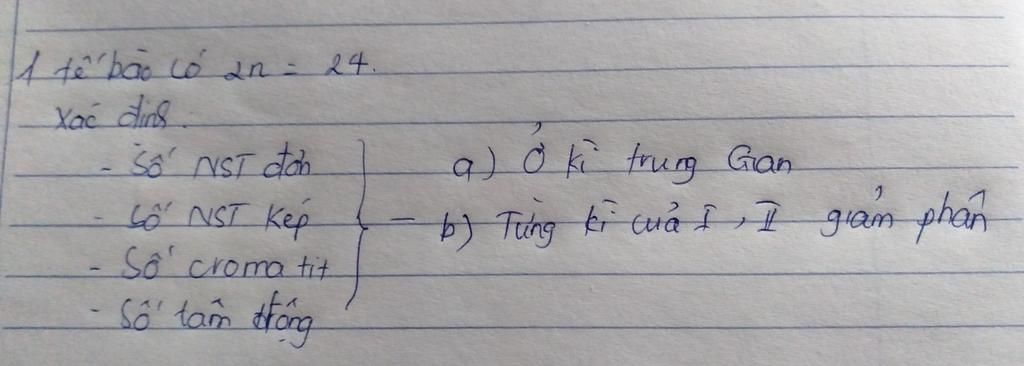 1 tế bào có 2n = 24.
Xác định
- Số NST đơn
- Số NST kép
- Số cromatit
- Số tâm động
a) Ở kì trung Gian
- b) Từng kì của I, II giảm phân